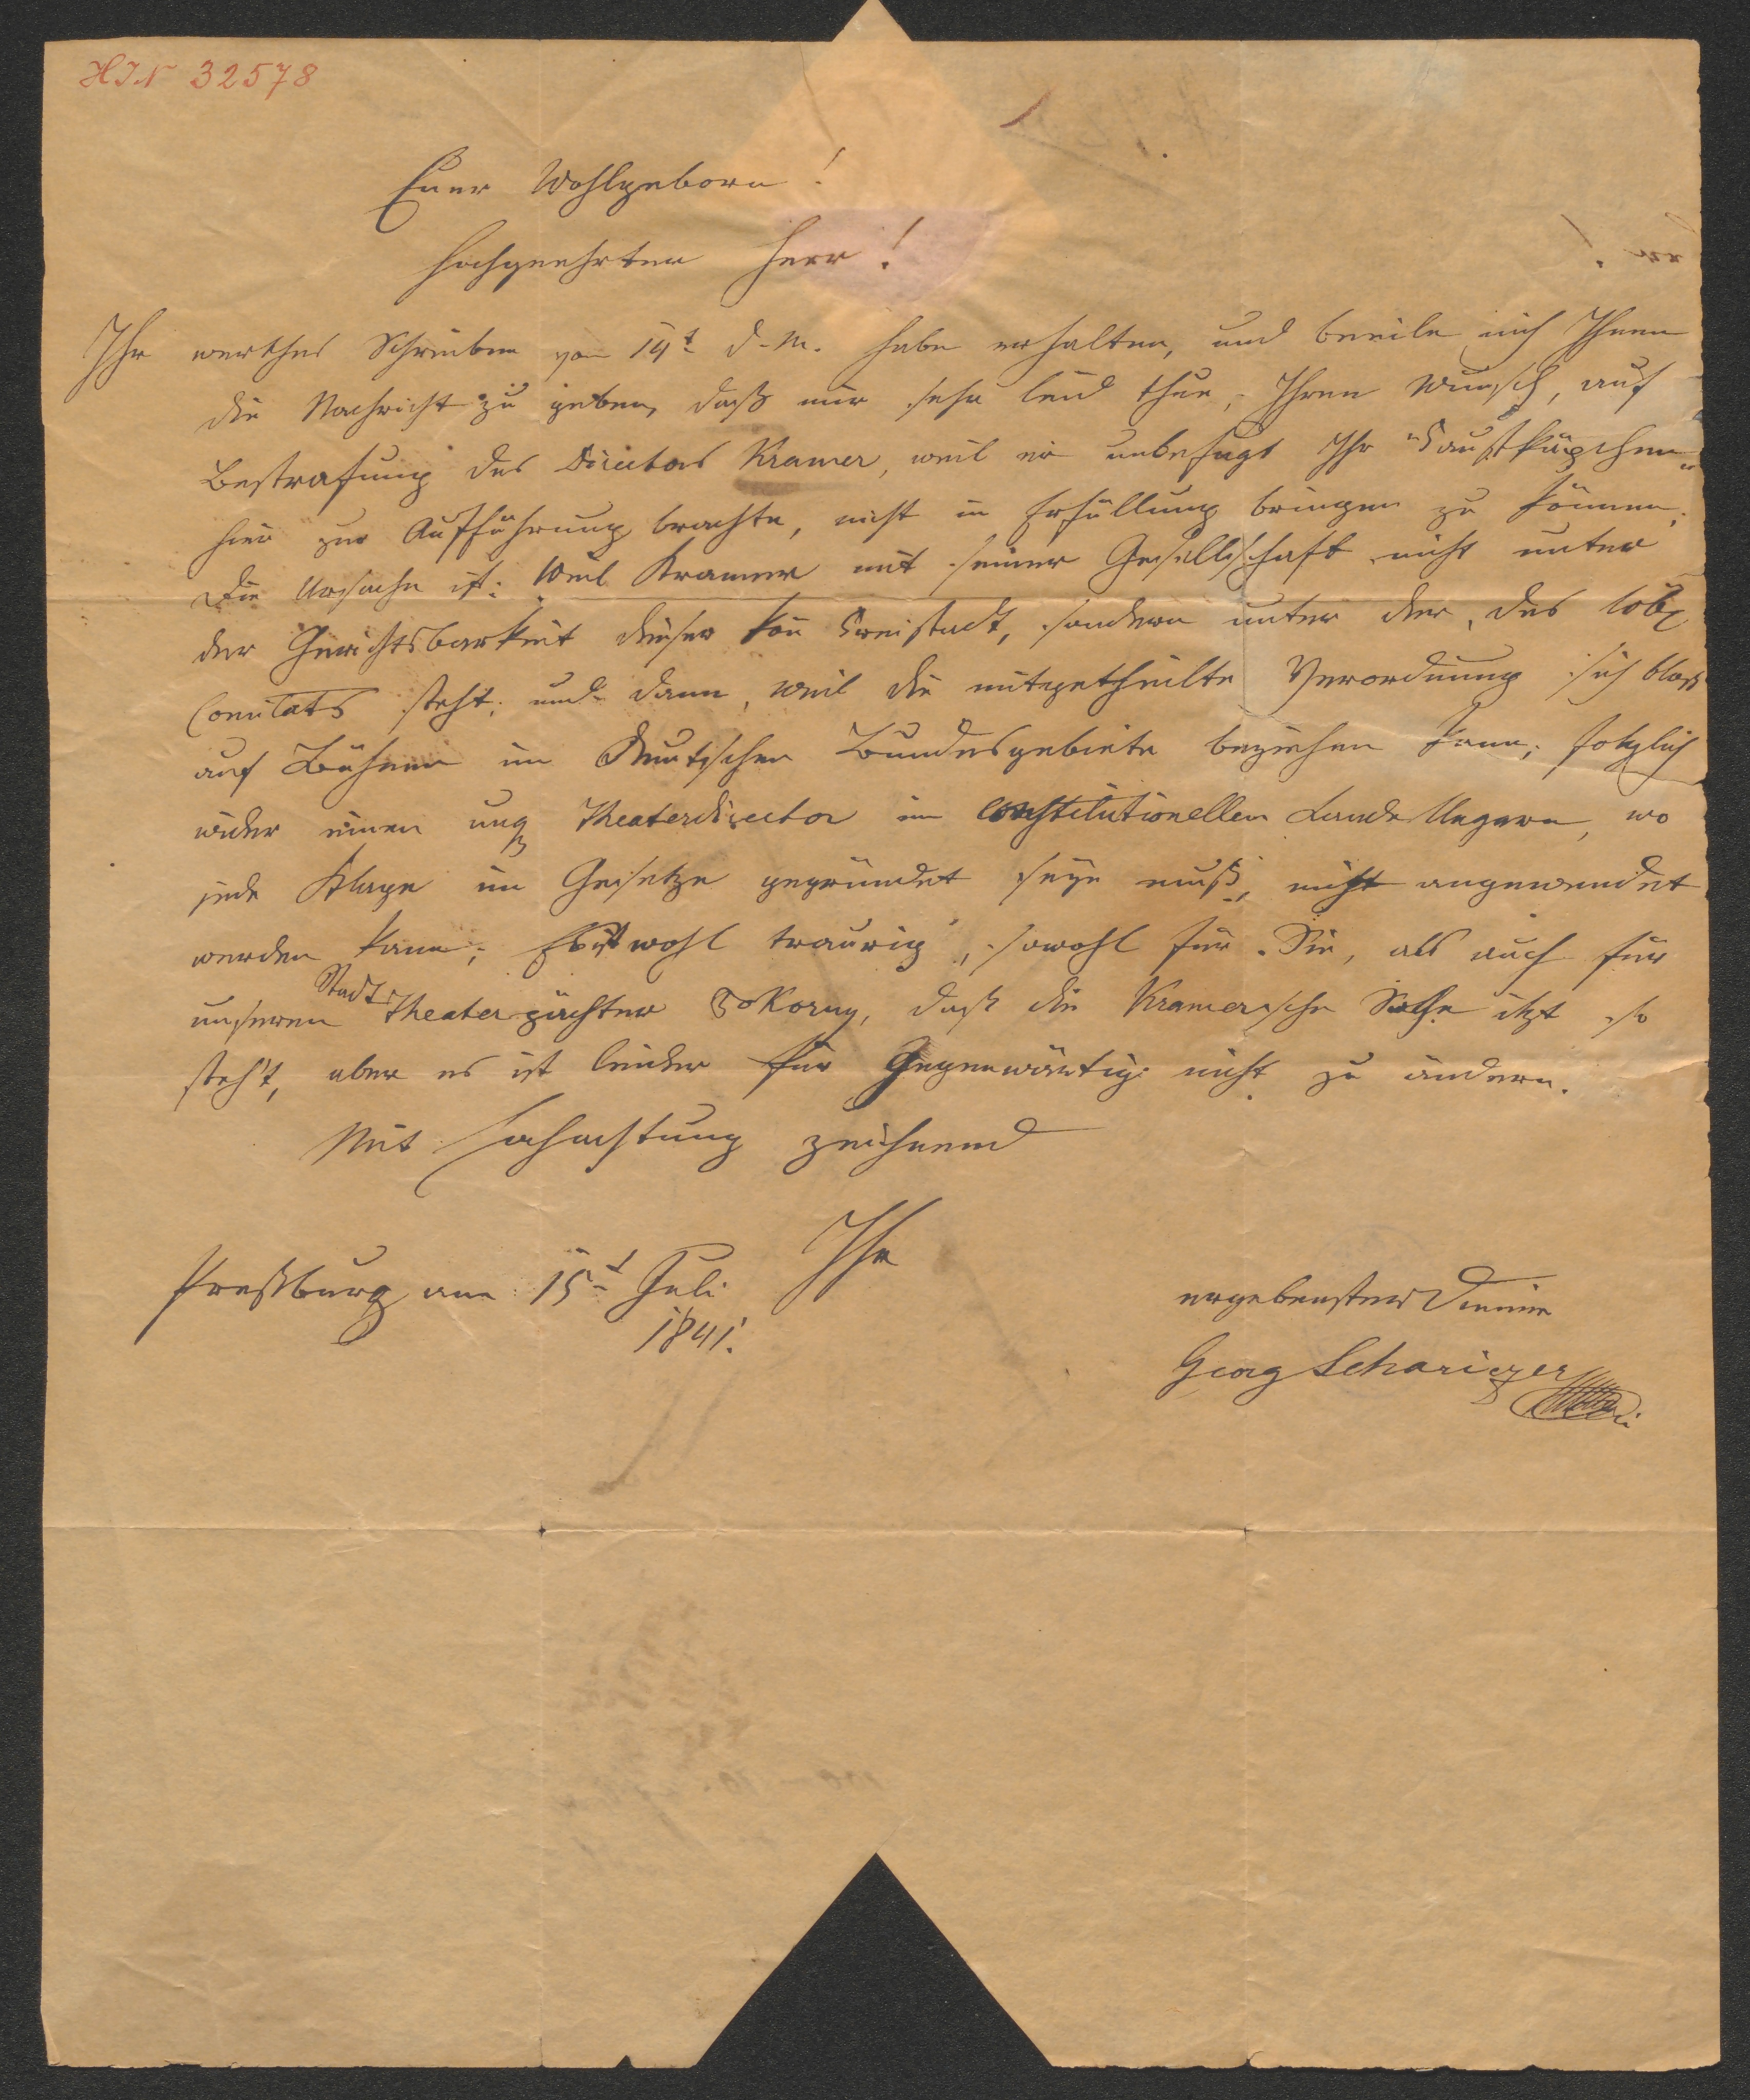 HIN 32578
Euer Wohlgeborn!
Hochgeehrter Herr!
Ihr werthes Schreiben vom 14t d. M. habe erhalten, und beeile mich Ihnen
die Nachricht zu geben, daß mir sehr leid thue, Ihren Wunsch, auf
Bestrafung des Directors Kramer, weil er unbefugt Ihr
hier zur Aufführung brachte, nicht in Erfüllung bringen zu können.
Die Ursache ist: Weil Kramer mit seiner Gesellschaft nicht unter
der Gerichtsbarkeit dieser kön Freistadt, sondern unter der, des löbl
Comitats steht; und dann, weil die mitgetheilte Verordnung sich blos
auf Bühnen im Deutschen Bundesgebiete beziehen kann; folglich
wider einen ung Theaterdirector im constitutionellen Lande Ungarn, wo
jede Klage im Gesetze gegründet seyn muß, nicht angewendet
werden kann; Es ist wohl traurig, sowohl für Sie, als auch für
unseren Stadt Theaterpächter Pokorny, daß die Kramersche Sache itzt so
steht, aber es ist leider für Gegenwärtig nicht zu ändern.
Mit Hochachtung zeichnend
Ihr
Preßburg am 15t Juli
1841.
ergebenster Diener
Georg Schariczer